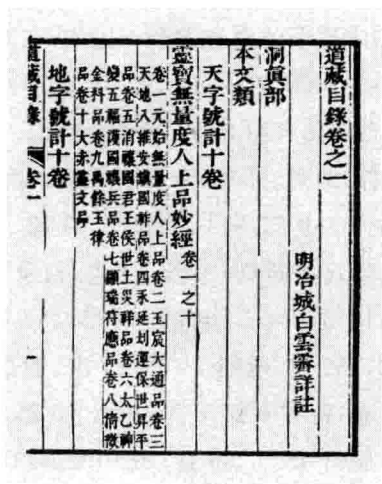 道藏目錄卷之一
明冶城白雲霽詳註
洞眞部
本文類
天字號計十卷
靈寶無量度人上品妙經卷一之十
卷一元始無量度人上品卷二玉宸大通品卷三
天地八維安鎮國祚品卷四永延劫運保世昇平
品卷五消禳國君王侯世土災祥品卷六太乙神
變五福護國禳兵品卷七顯瑞符應品卷八清微
金科品卷九禹餘玉律
品卷十大赤靈文品
地字號計十卷
道藏目錄 卷一 一